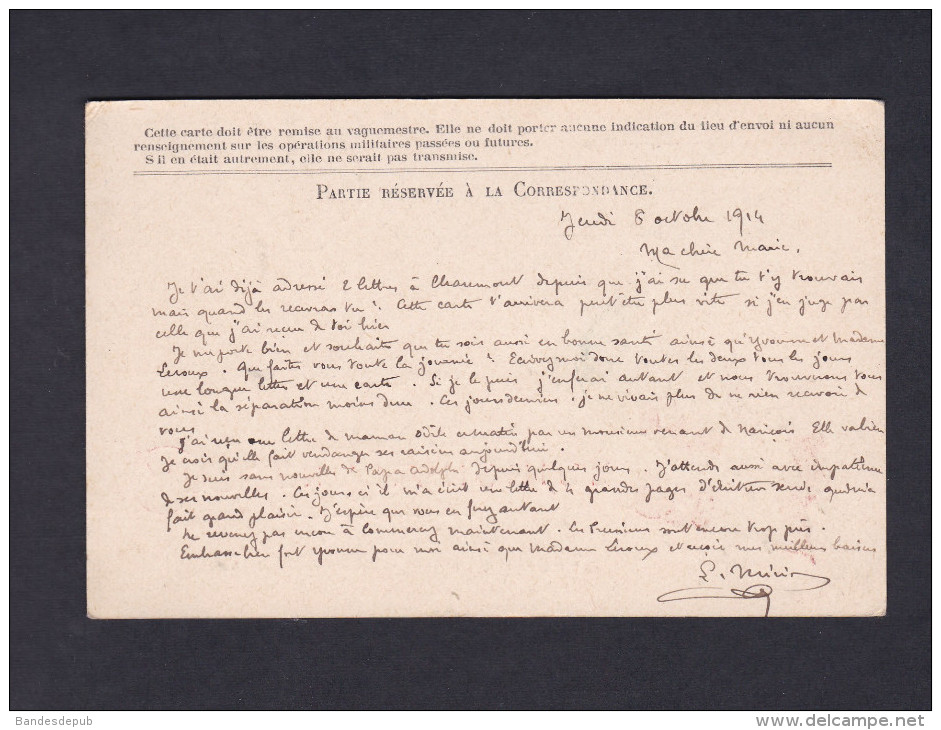 Cette carte doit être remise au vaguemestre. Elle ne doit porter aucune indication du lieu d'envoi ni aucun
renseignement sur les opérations militaires passées ou futures.
S il en était autrement, elle ne serait pas transmise.
PARTIE RÉSERVÉE À LA CORRESPONDANCE.
Jeudi 8 octobre 1914
Ma chère Marie,
Je t'ai déjà adressé 2 lettres à Charemont depuis que j'ai su que tu t'y trouvais
mais quand les recevras tu ? Cette carte t'arrivera peut être plus vite si j'en juge par
celle que j'ai reçue de toi hier
Je me porte bien et souhaite que tu sois aussi en bonne santé ainsi qu'Yvonne et Madame
Leroux. Que faites vous toute la journée ? Ecrivez moi donc toutes les deux tous les jours
une longue lettre et une carte. Si je le puis j'en ferai autant et nous trouverons tous
ainsi la séparation moins dure. Ces jours derniers, je ne vivais plus de ne rien recevoir de
vous
J'ai reçu une lettre de maman Odile ce matin par un monsieur venant de Naríçois Elle va bien
Je crois qu'elle fait vendanger ses raisins aujourd'hui.
Je suis sans nouvelles de Papa Adolphe depuis quelques jours. J'attends aussi avec impatience
de ses nouvelles. Ces jours ci il m'a écrit une lettre de 4 grandes pages d'écriture serrée qui m'a
fait grand plaisir. J'espère que vous en ferez autant
Ne revenez pas encore à Commercy maintenant. Les Prussiens sont encore trop près.
Embrasse bien fort Yvonne pour moi ainsi que Madame Leroux et reçois mes meilleurs baisers
Bandesdepub
www.delcampe.net